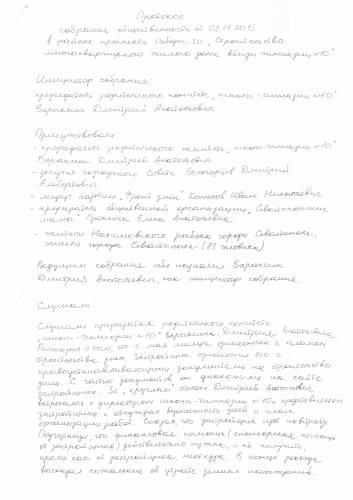 Протокол
собрания общественности от 09.11.2013
в районе проспекта Победы, 30: „Строительство
многоквартирного жилого дома вблизи гимназии №10"
Инициатор собрания
председатель родительского комитета „школы-гимназии №10"
Вараксин Дмитрий Анатольевич
Присутствовали
- председатель родительского комитета „школы-гимназии №10"
Вараксин Дмитрий Анатольевич
- депутат городского Совета Белогорцев Дмитрий
Альбертович
- лидер партии „Фронт змін" Комелов Иван Николаевич
- председатель общественной организации „Севастопольские
мамы" Прокина Елена Анатольевна
- жители Нахимовского района города Севастополя,
жители города Севастополя (83 человека)
Ведущим собрания себя назначил Вараксин
Дмитрий Анатольевич, как инициатор собрания.
Слушали:
Слушали председателя родительского комитета
школы-гимназии №10 Вараксина Дмитрия Анатольевича.
с мая месяца ознакомлен с планом
строительства дома, застройщик ознакомил его с
правоустанавливающими документами на строительство
дома. С частью документов он ознакомился на сайте
застройщика. За „круглым" столом Дмитрий Анатольевич
встречался с директором школы-гимназии №10 и представителем
застройщика и обсуждал идей и план
организации работ. Сказал, что застройщик
Подчеркнул, что финансовая помощь (спонсорская помощь
от застройщика) действительно нужна, и её получить,
кроме как от застройщика неоткуда. В конце доклада
высказал сожаление об утрате зеленых насаждений.